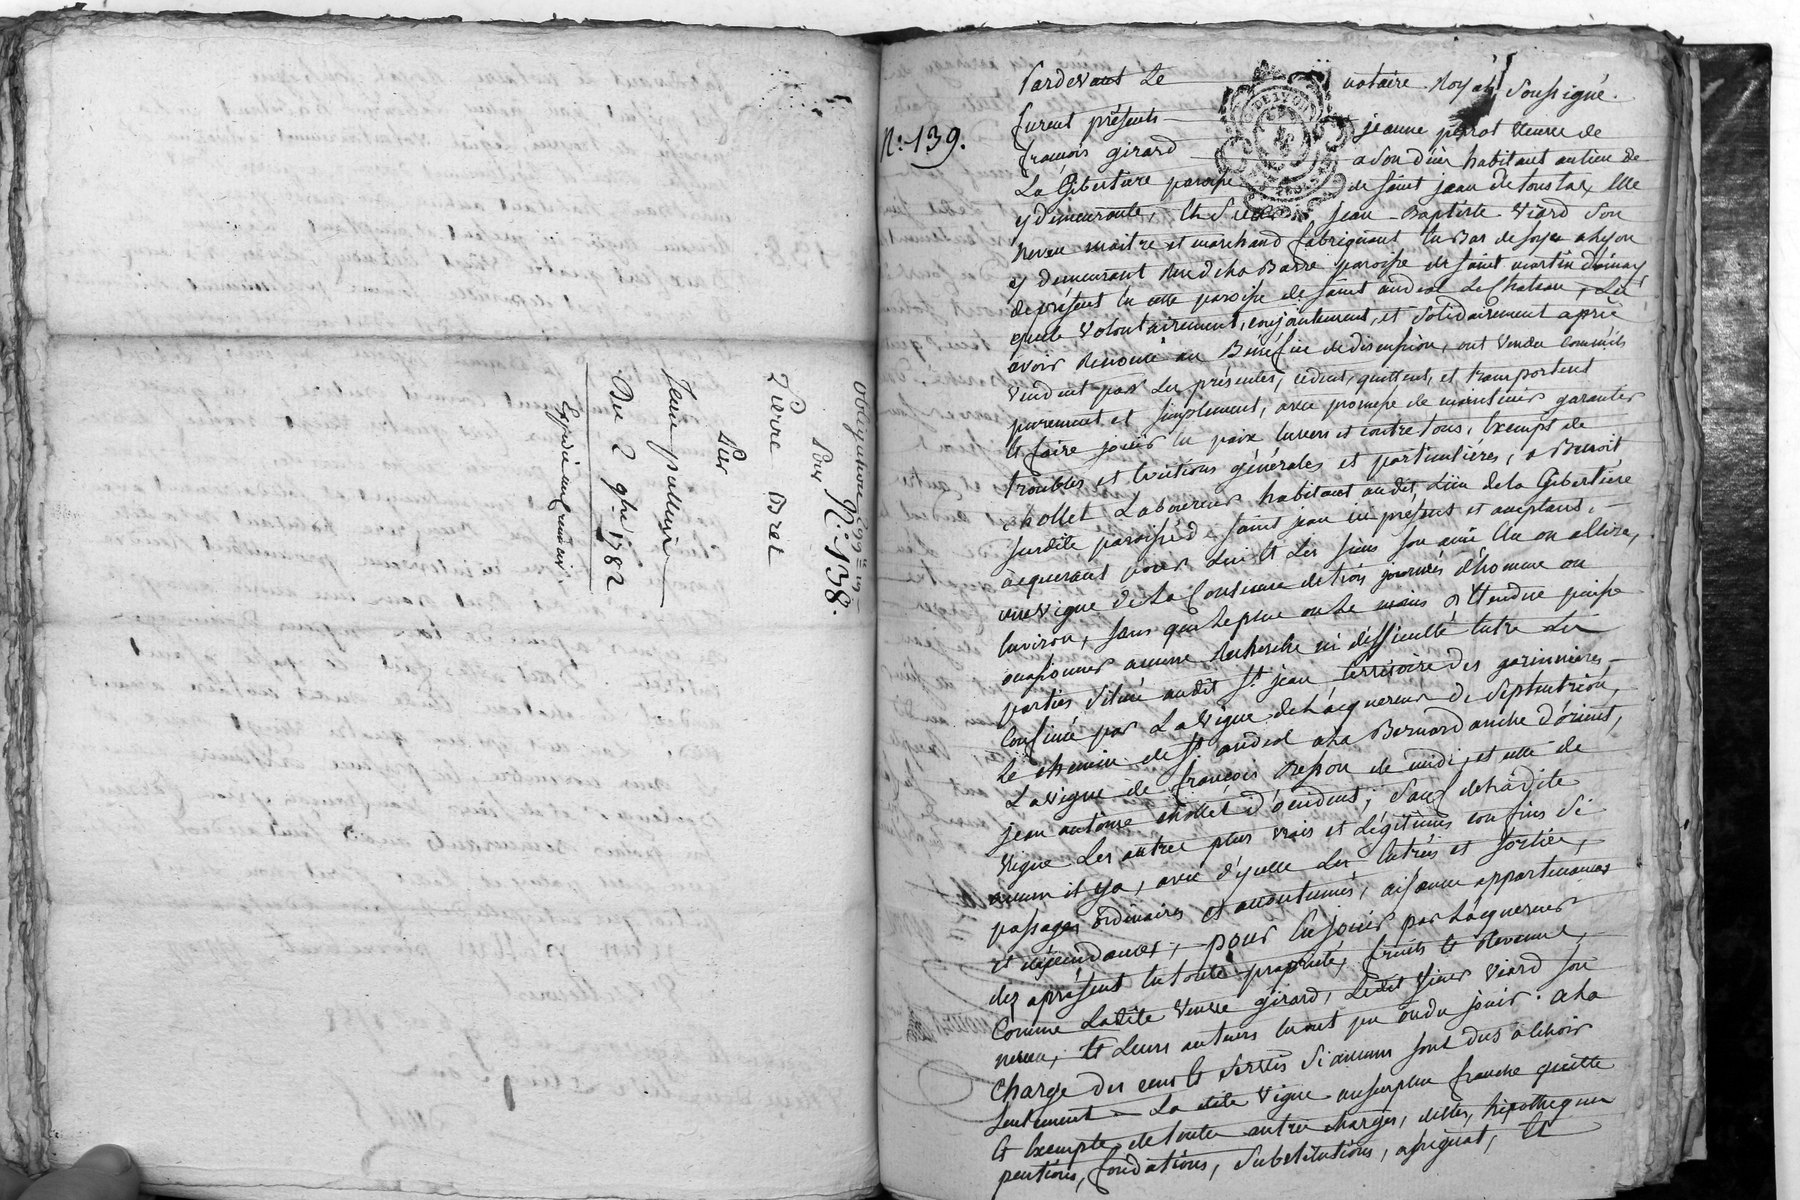 obligation
N.° 138.
Pour
Pierre Bret
Sur
Du 2 9bre 1782
Expédié en
N.° 139.
Pardevant Le notaire Royal Soussigné.
furent présents jeanne perrot veuve de
françois girard a son décès habitant au lieu de
La Gibertiere paroisse de saint jean de toustas, Elle
y demeurante, Et Sieur jean Baptiste Viard son
neveu maitre et marchand fabriquant En Bas de soye a Lyon
y demeurant Rue de La Barre paroisse de saint martin d'ainay
de présent En cette paroisse de saint andeol Le Chateau, Les
quels volontairement, conjointement, et solidairement après
avoir Renoncé au Bénéfice de discussion, ont vendu comm'ils
vendent par Les présentes, cedent, quittent, et transportent
purement et simplement, avec promesse de maintenir garantir
Et faire jouir En paix Envers et contre tous, Exempt de
troubles et Evictions générales et particulières, a Benoit
chollet Laboureur habitant audit Lieu de la Gibertiere
susdite paroisse de saint jean ici présent et acceptant,
acquerant pour Lui Et Les siens
une vigne de La Contenue de trois journées d'homme ou
Environ, sans que Le plus ou Le moins d'Etendue puisse
occasionner aucune Recherche ni difficulté Entre Les
parties située audit St jean territoire des garinnières
Confinée par La vigne de L'acquereur de Septentrion,
Le chemin de St andeol a La Bernardanche d'orient,
La vigne de françois Resson de midi, et celle de
jean antoine chollet d'occident; Sauf de La dite
vigne Les autres plus vrais et Légitimes confins Si
aucun il y a, avec d'ycelle Les Entrées et sorties,
passages ordinaires et accoutumés, aisances appartenances
et dépendances, pour En jouir par L'acquereur
dès aprésent En toute propriété, fruits Et Revenus,
Comme Ladite veuve girard, Ledit sieur Viard son
neveu, Et Leurs auteurs En ont pu ou du jouir. a La
charge des cens Et servis Si aucuns sont dus a Echoir
seulement La dite vigne au surplus franche quitte
Et Exempte de toutes autres charges, dettes, hipotheques
pentions, fondations, Substitutions, assignat, Et